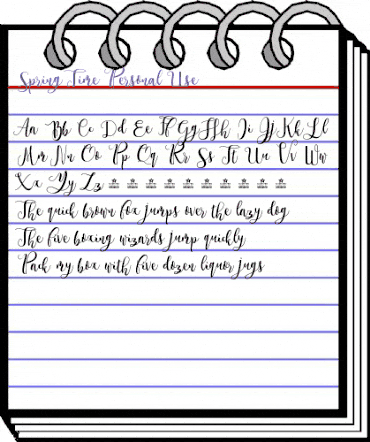 Spring Time Personal Use
Aa Bb Cc Dd Ee Ff Gg Hh Ii Jj Kk Ll
Mm Nn Oo Pp Qq Rr Ss Tt Uu Vv Ww
Xx Yy Zz
The quick brown fox jumps over the lazy dog
The five boxing wizards jump quickly
Pack my box with five dozen liquor jugs